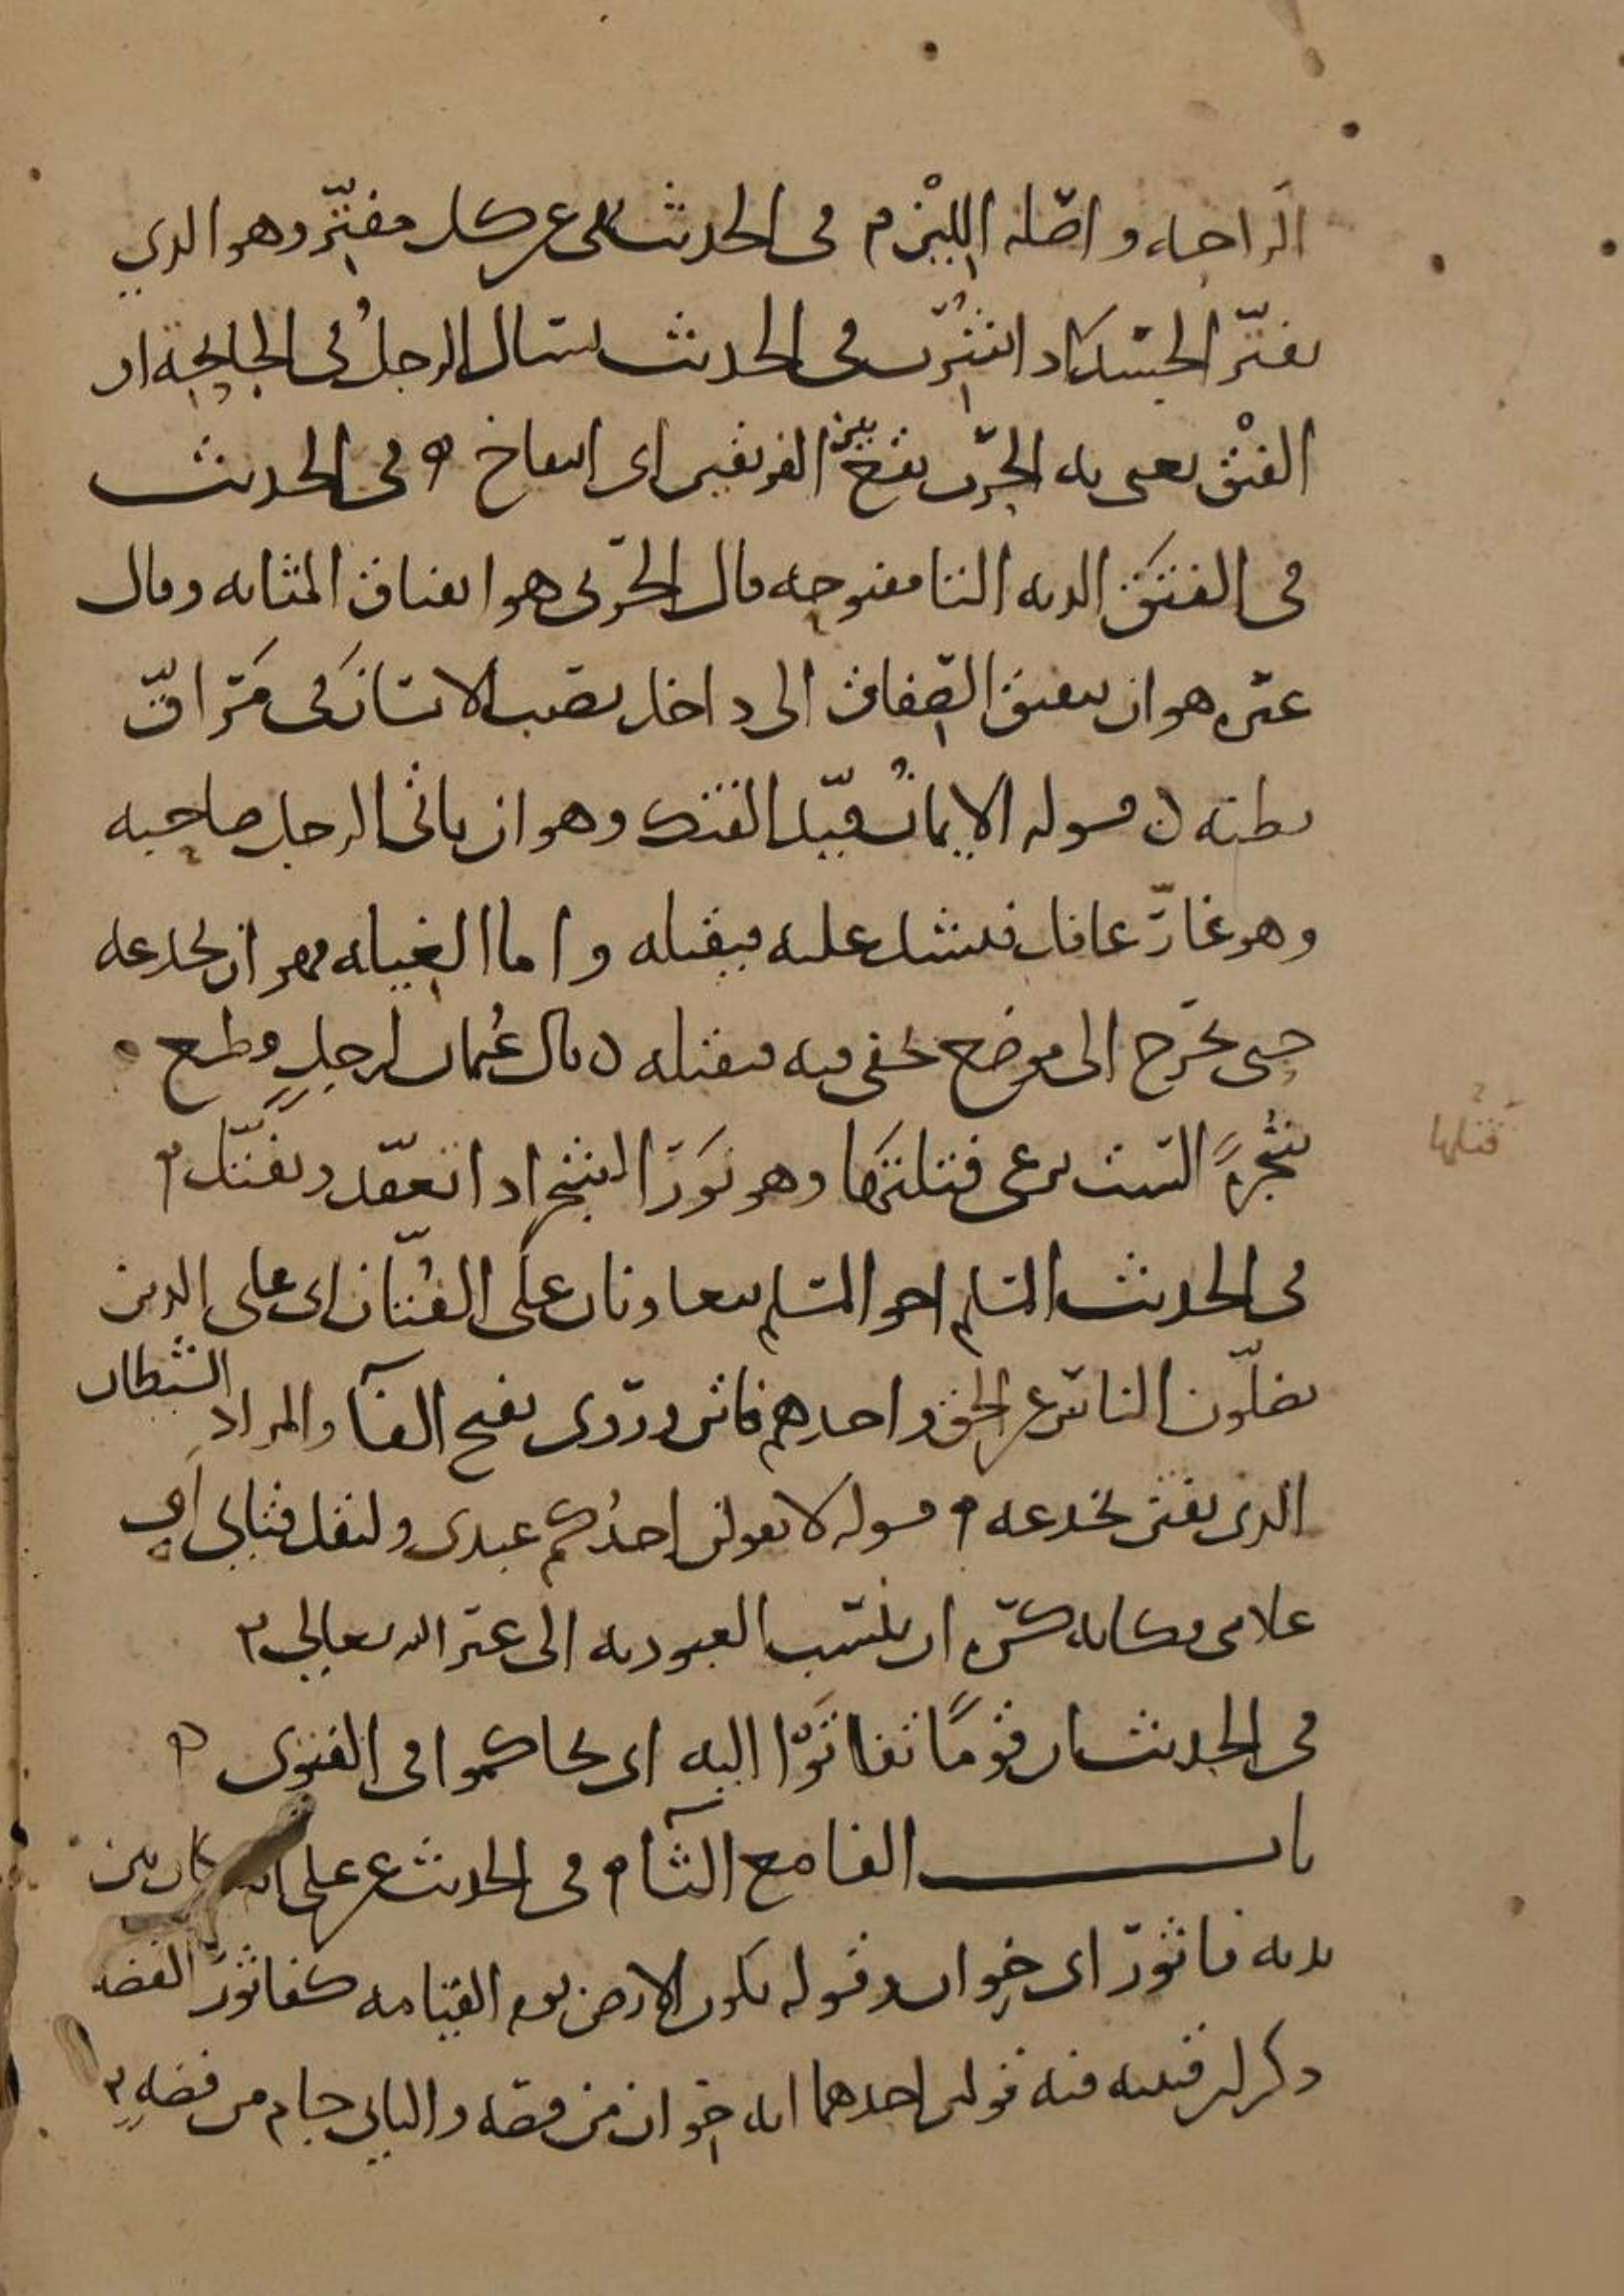 الراحة واصله اللين م في الحديث نهى عن كل مفتر وهو الذي
يفتر الجسد اذا شرب في الحديث يسال الرجل في الجايحة او
الفتق يعني به الحرب تقع بين الفريقين اي انتفاخ ه في الحديث
في الفتق الدية التا مفتوحة قال الحربي هو انفتاق المثانة وقال
غيره هو ان ينفتق الصفاق الى داخل يصيب الانسان في مراق
بطنه ن قوله الايمان قيد الفتك وهو ان ياتي الرجل صاحبه
وهو غار غافل فيشد عليه فيقتله واما الغيلة فهو ان يخدعه
حتى يخرج الى موضع يخفى فيه فيقتله ن قال عثمان لرجل قطع
شجرة الست ترعى فتلتها وهو نور الشجر اذا تعقد وتفتل م
فتلها
في الحديث المسلم اخو المسلم يتعاونان على الفتان اي على الذين
يضلون الناس عن الحق واحدهم فاتن وروى بفتح الفا والمراد الشيطان
الذي يفتن بخدعه م قوله لا يقولن احدكم عبدي وليقل فتاي اي
غلامي وكانه كره ان ينسب العبودية الى غير الله تعالى م
في الحديث ان قوما تفاتوا اليه اي تحاكموا في الفتوى ه
باب الفا مع الثا م في الحديث عن علي انه كان بين
يديه فاثور اي خوان وقوله تكون الارض يوم القيامة كفاثور الفضة
ذكر ابن قتيبة فيه قولين احدهما انه خوان من فضة والثاني جام من فضة م